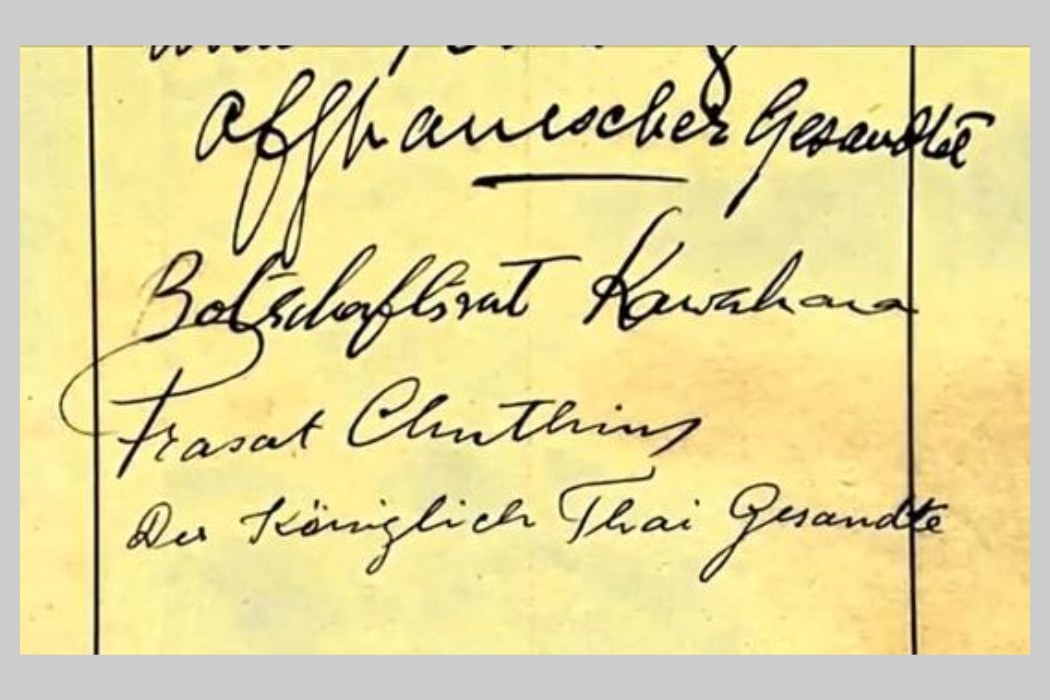 Affhanischer Gesandte
Botschaftsrat Kawahara
Prasat Chuthin
Der Königlich Thai Gesandte